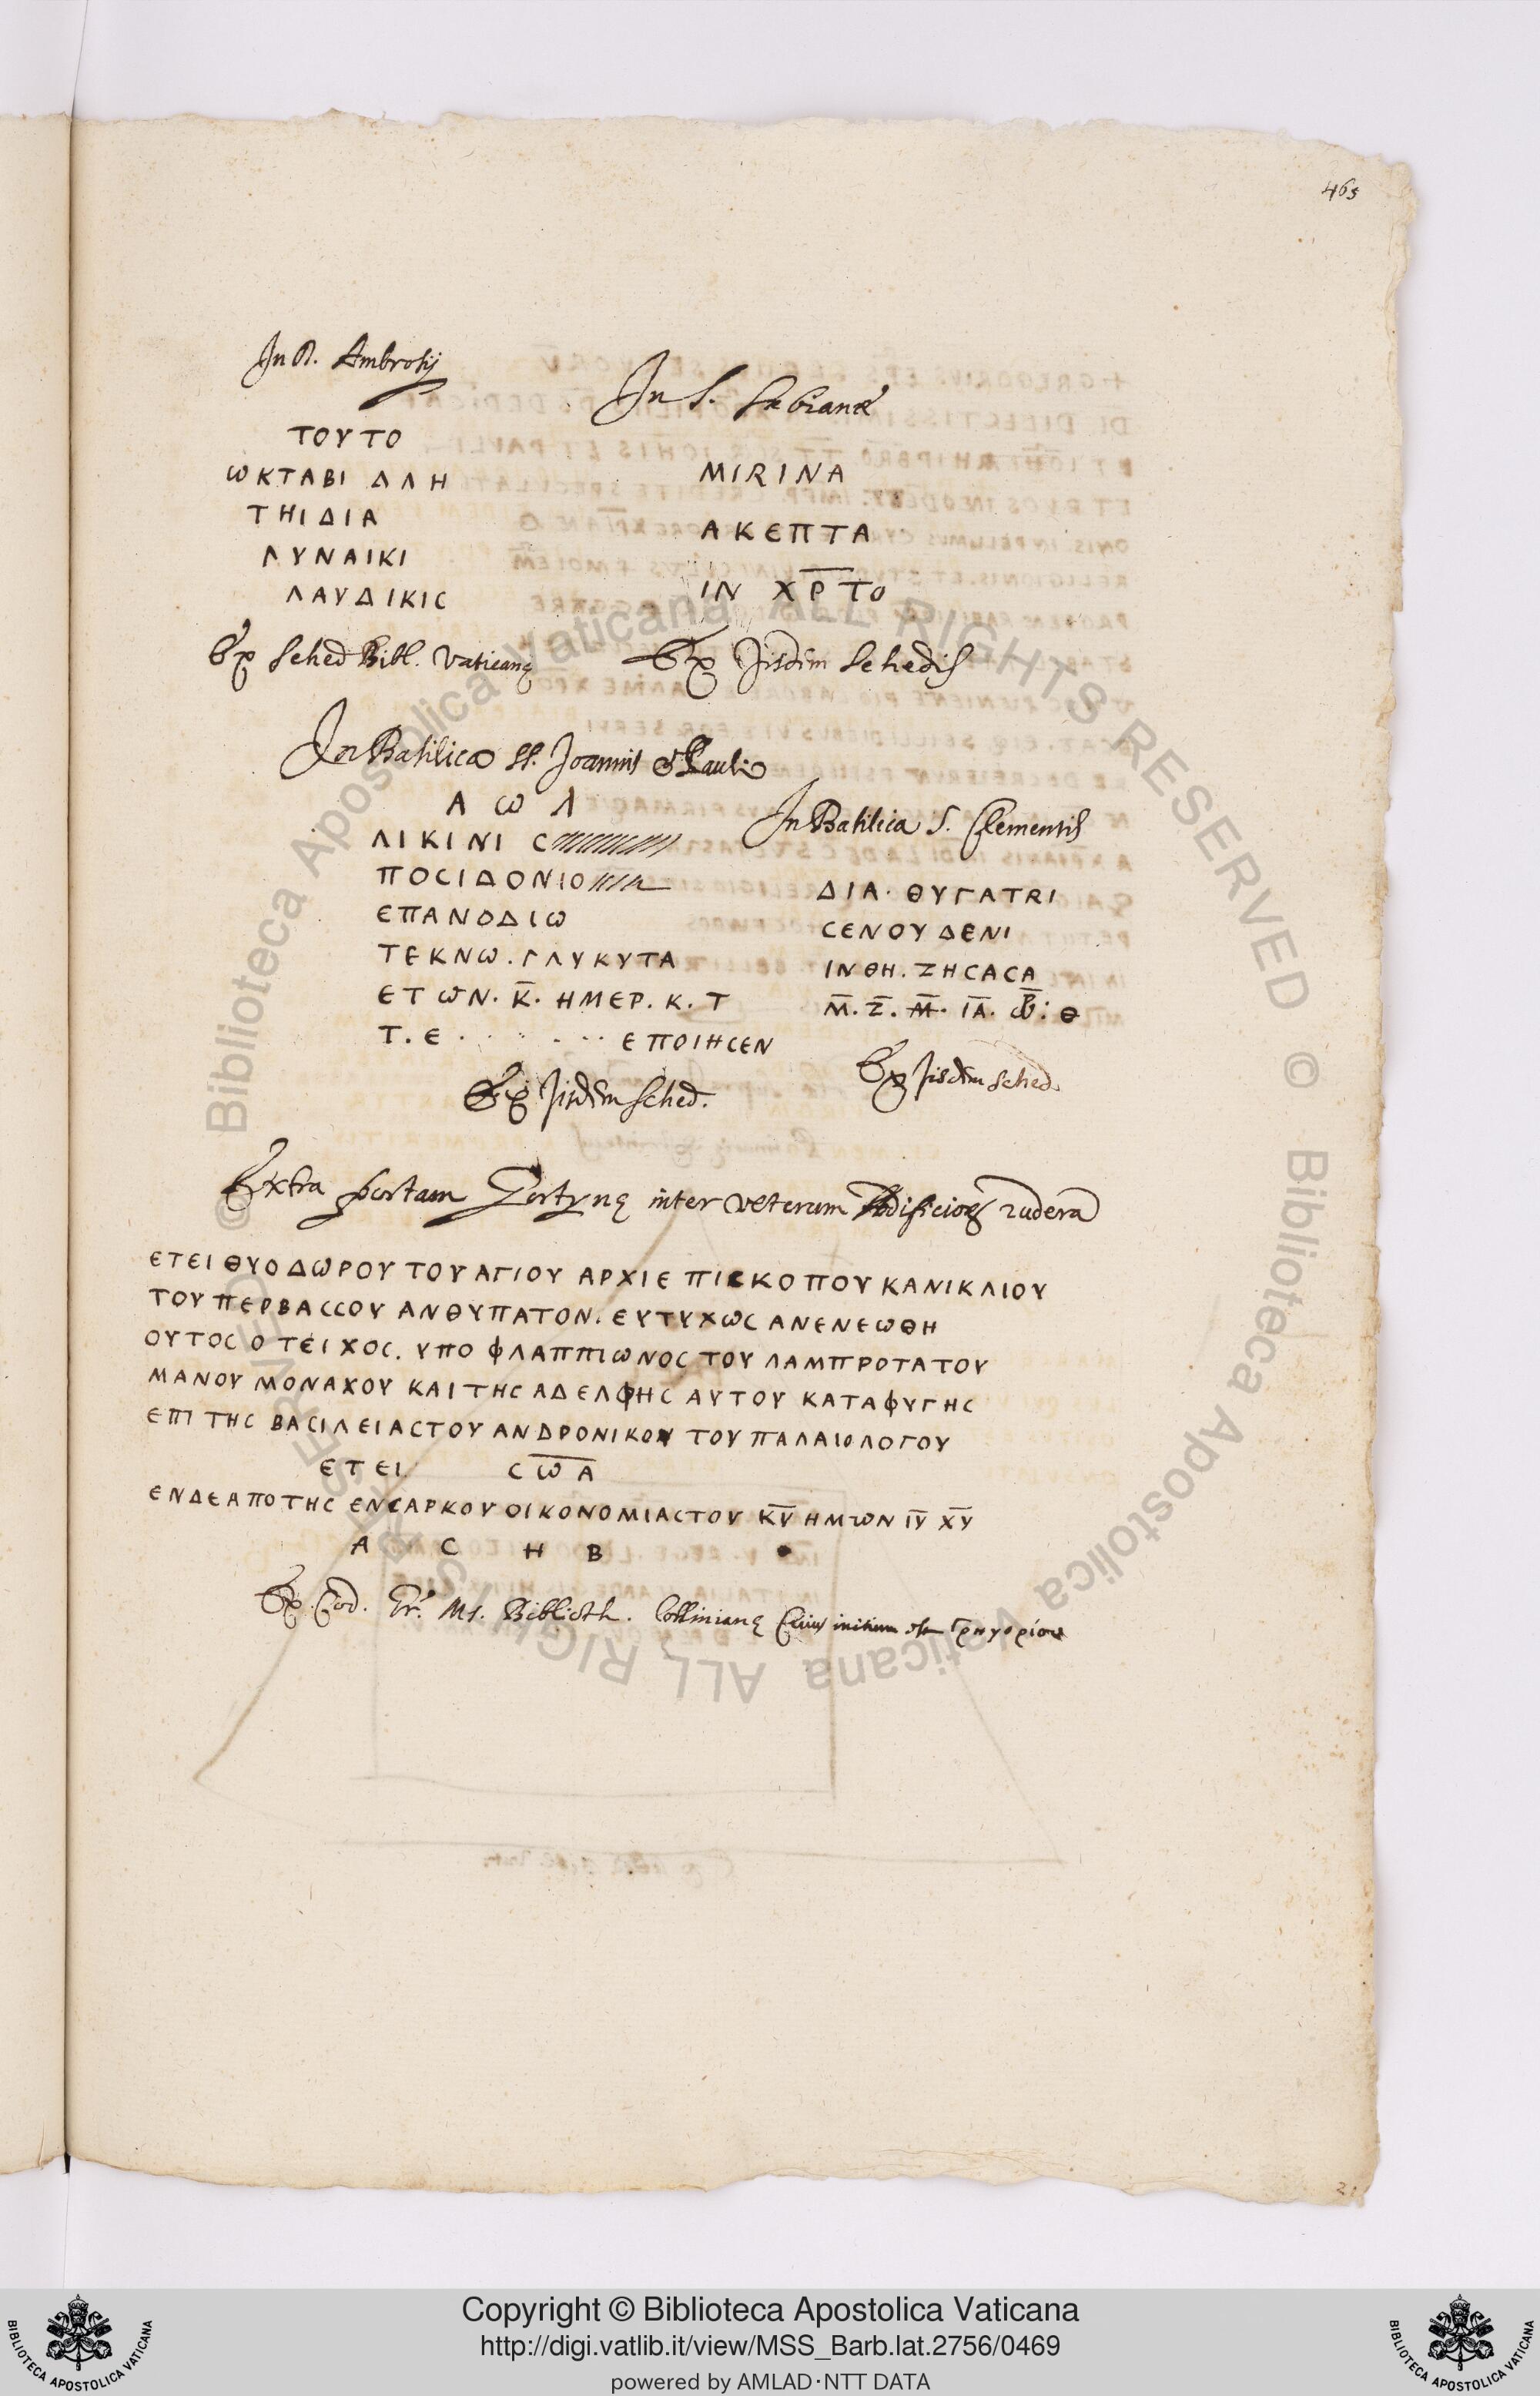 465
In D. Ambrosij
ΤΟΥΤΟ
ωΚΤΑΒΙ ΔΛΗ
ΤΗΙΔΙΑ
ΛΥΝΑΙΚΙ
ΛΑΥΔΙΚΙC
Ex Sched Bibl. Vaticanę
In S. Sabianae
MIRINA
ΑΚΕΠΤΑ
IN ΧΡΤΟ
Ex Jisdem Schedis
In Basilica SS. Joannis & Pauli
Α ω λ
ΛΙΚΙΝΙ C
ΠΟCΙΔΟΝΙΟ
ΕΠΑΝΟΔΙω
ΤΕΚΝω . ΓΛΥΚΥΤΑ
ΕΤωΝ. Κ̅. ΗΜΕΡ. Κ. Τ
Τ. Ε . . . . . . ΕΠΟΙΗCΕΝ
Ex Jisdem Sched.
In Basilica S. Clementis
ΔΙΑ. ΘΥΓΑΤRΙ
CΕΝΟΥΔΕΝΙ
ΙΝΘΗ. ΖΗCΑCΑ
Μ̅. Ζ̅. Μ̅. ΙΑ̅. : Θ
Ex Jisdem Sched.
Extra portam Gortynę inter veterum Aedificiorum rudera
ΕΤΕΙ ΘΥΟΔωΡΟΥ ΤΟΥ ΑΓΙΟΥ ΑΡΧΙΕΠΙCΚΟΠΟΥ ΚΑΝΙΚΛΙΟΥ
ΤΟΥ ΠΕΡΒΑCCΟΥ ΑΝΘΥΠΑΤΟΝ. ΕΥΤΥΧωC ΑΝΕΝΕωΘΗ
ΟΥΤΟC Ο ΤΕΙΧΟC. ΥΠΟ ΦΛΑΠΠΙωΝΟC ΤΟΥ ΛΑΜΠΡΟΤΑΤΟΥ
ΜΑΝΟΥ ΜΟΝΑΧΟΥ ΚΑΙ ΤΗC ΑΔΕΛΦΗC ΑΥΤΟΥ ΚΑΤΑΦΥΓΗC
ΕΠΙ ΤΗC ΒΑCΙΛΕΙΑC ΤΟΥ ΑΝΔΡΟΝΙΚΟΥ ΤΟΥ ΠΑΛΑΙΟΛΟΓΟΥ
ΕΤΕΙ. C ω Α
ΕΝΔΕ ΑΠΟ ΤΗC ΕΝCΑΡΚΟΥ ΟΙΚΟΝΟΜΙΑC ΤΟΥ Κ̅Υ̅ ΗΜωΝ Ι̅Υ̅ Χ̅Υ̅
Α C Η Β
Ex Cod. Gr. MS. Biblioth. Cuius initium est Γρηγορίου
Copyright © Biblioteca Apostolica Vaticana
http://digi.vatlib.it/view/MSS_Barb.lat.2756/0469
powered by AMLAD·NTT DATA
© Biblioteca Apostolica Vaticana ALL RIGHTS RESERVED © Biblioteca Apostolica Vaticana ALL RIGHTS RESERVED
BIBLIOTECA APOSTOLICA VATICANA
BIBLIOTECA APOSTOLICA VATICANA